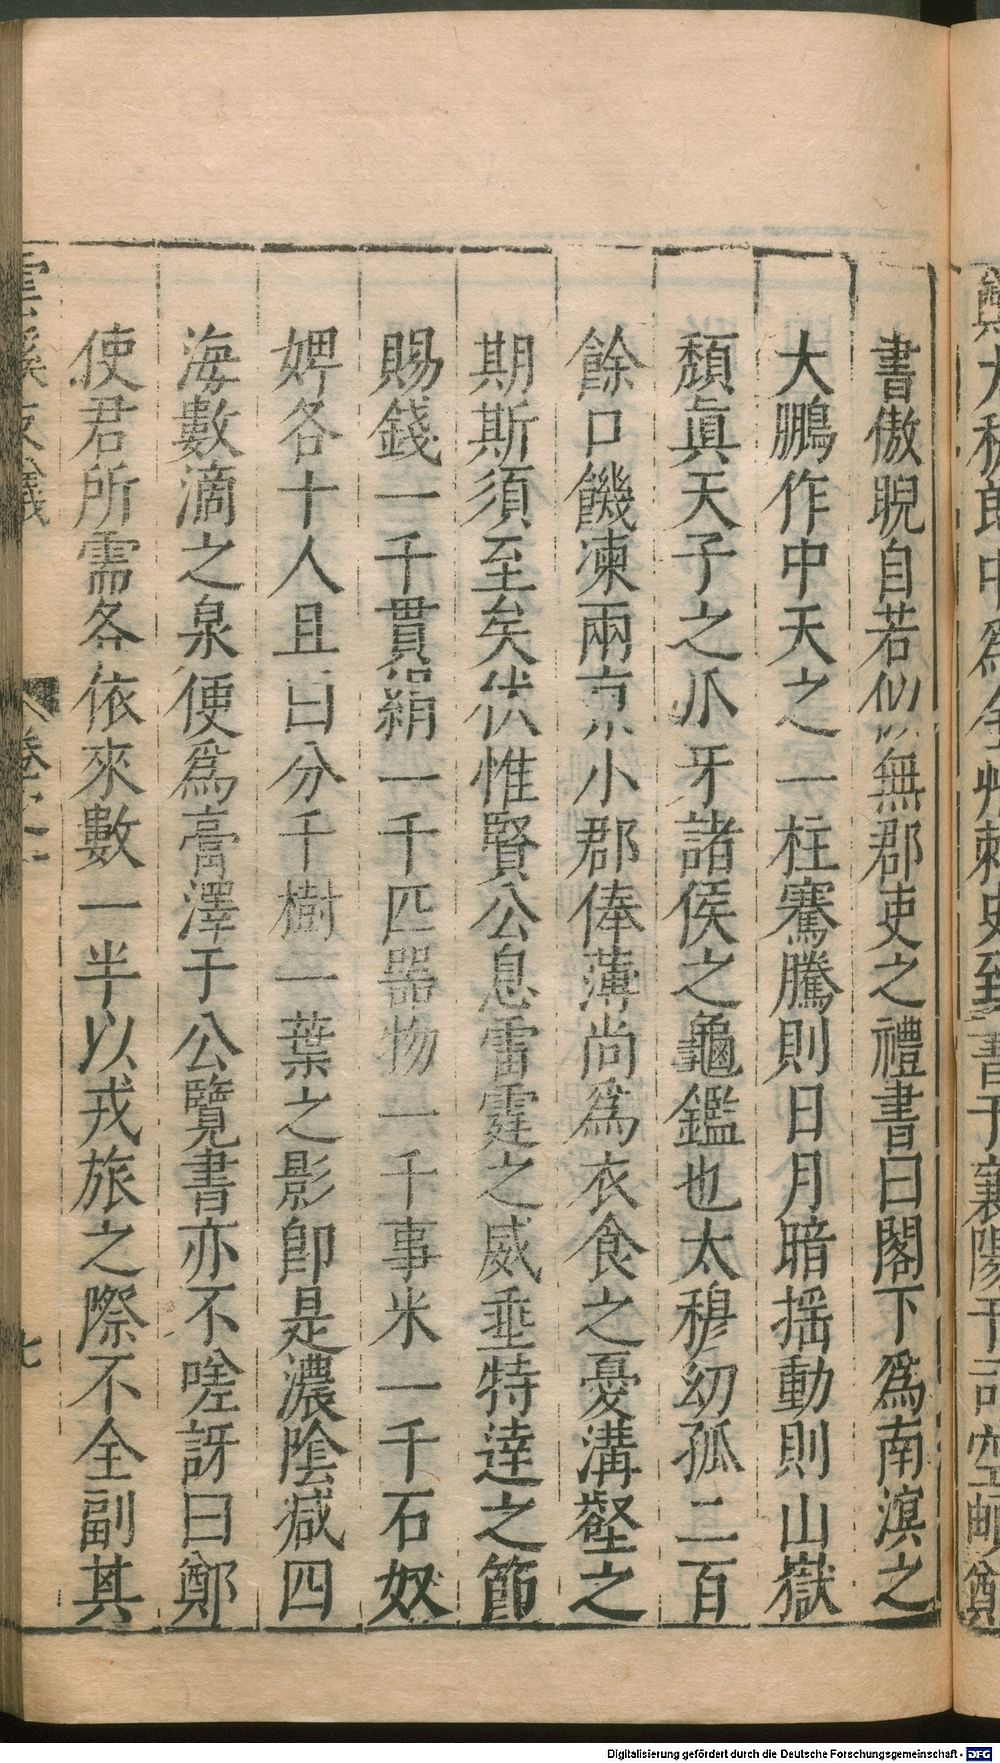 鄭太穆郎中爲金州刺史致書于襄陽于司空頔鄭
書傲睨自若似無郡吏之禮書曰閣下爲南溟之
大鵬作中天之一柱騫騰則日月暗摇動則山嶽
頹眞天子之爪牙諸侯之龜鑑也太穆幼孤二百
餘口饑凍兩京小郡俸薄尚爲衣食之憂溝壑之
期斯須至矣伏惟賢公息雷霆之威垂特逹之節
賜錢一千貫絹一千匹器物一千事米一千石奴
婢各十人且曰分千樹一葉之影卽是濃陰减四
海數滴之泉便爲膏澤于公覽書亦不嗟訝曰鄭
使君所需各依來數一半以戎旅之際不全副其
雲溪友議
卷之一
七
Digitalisierung gefördert durch die Deutsche Forschungsgemeinschaft - DFG